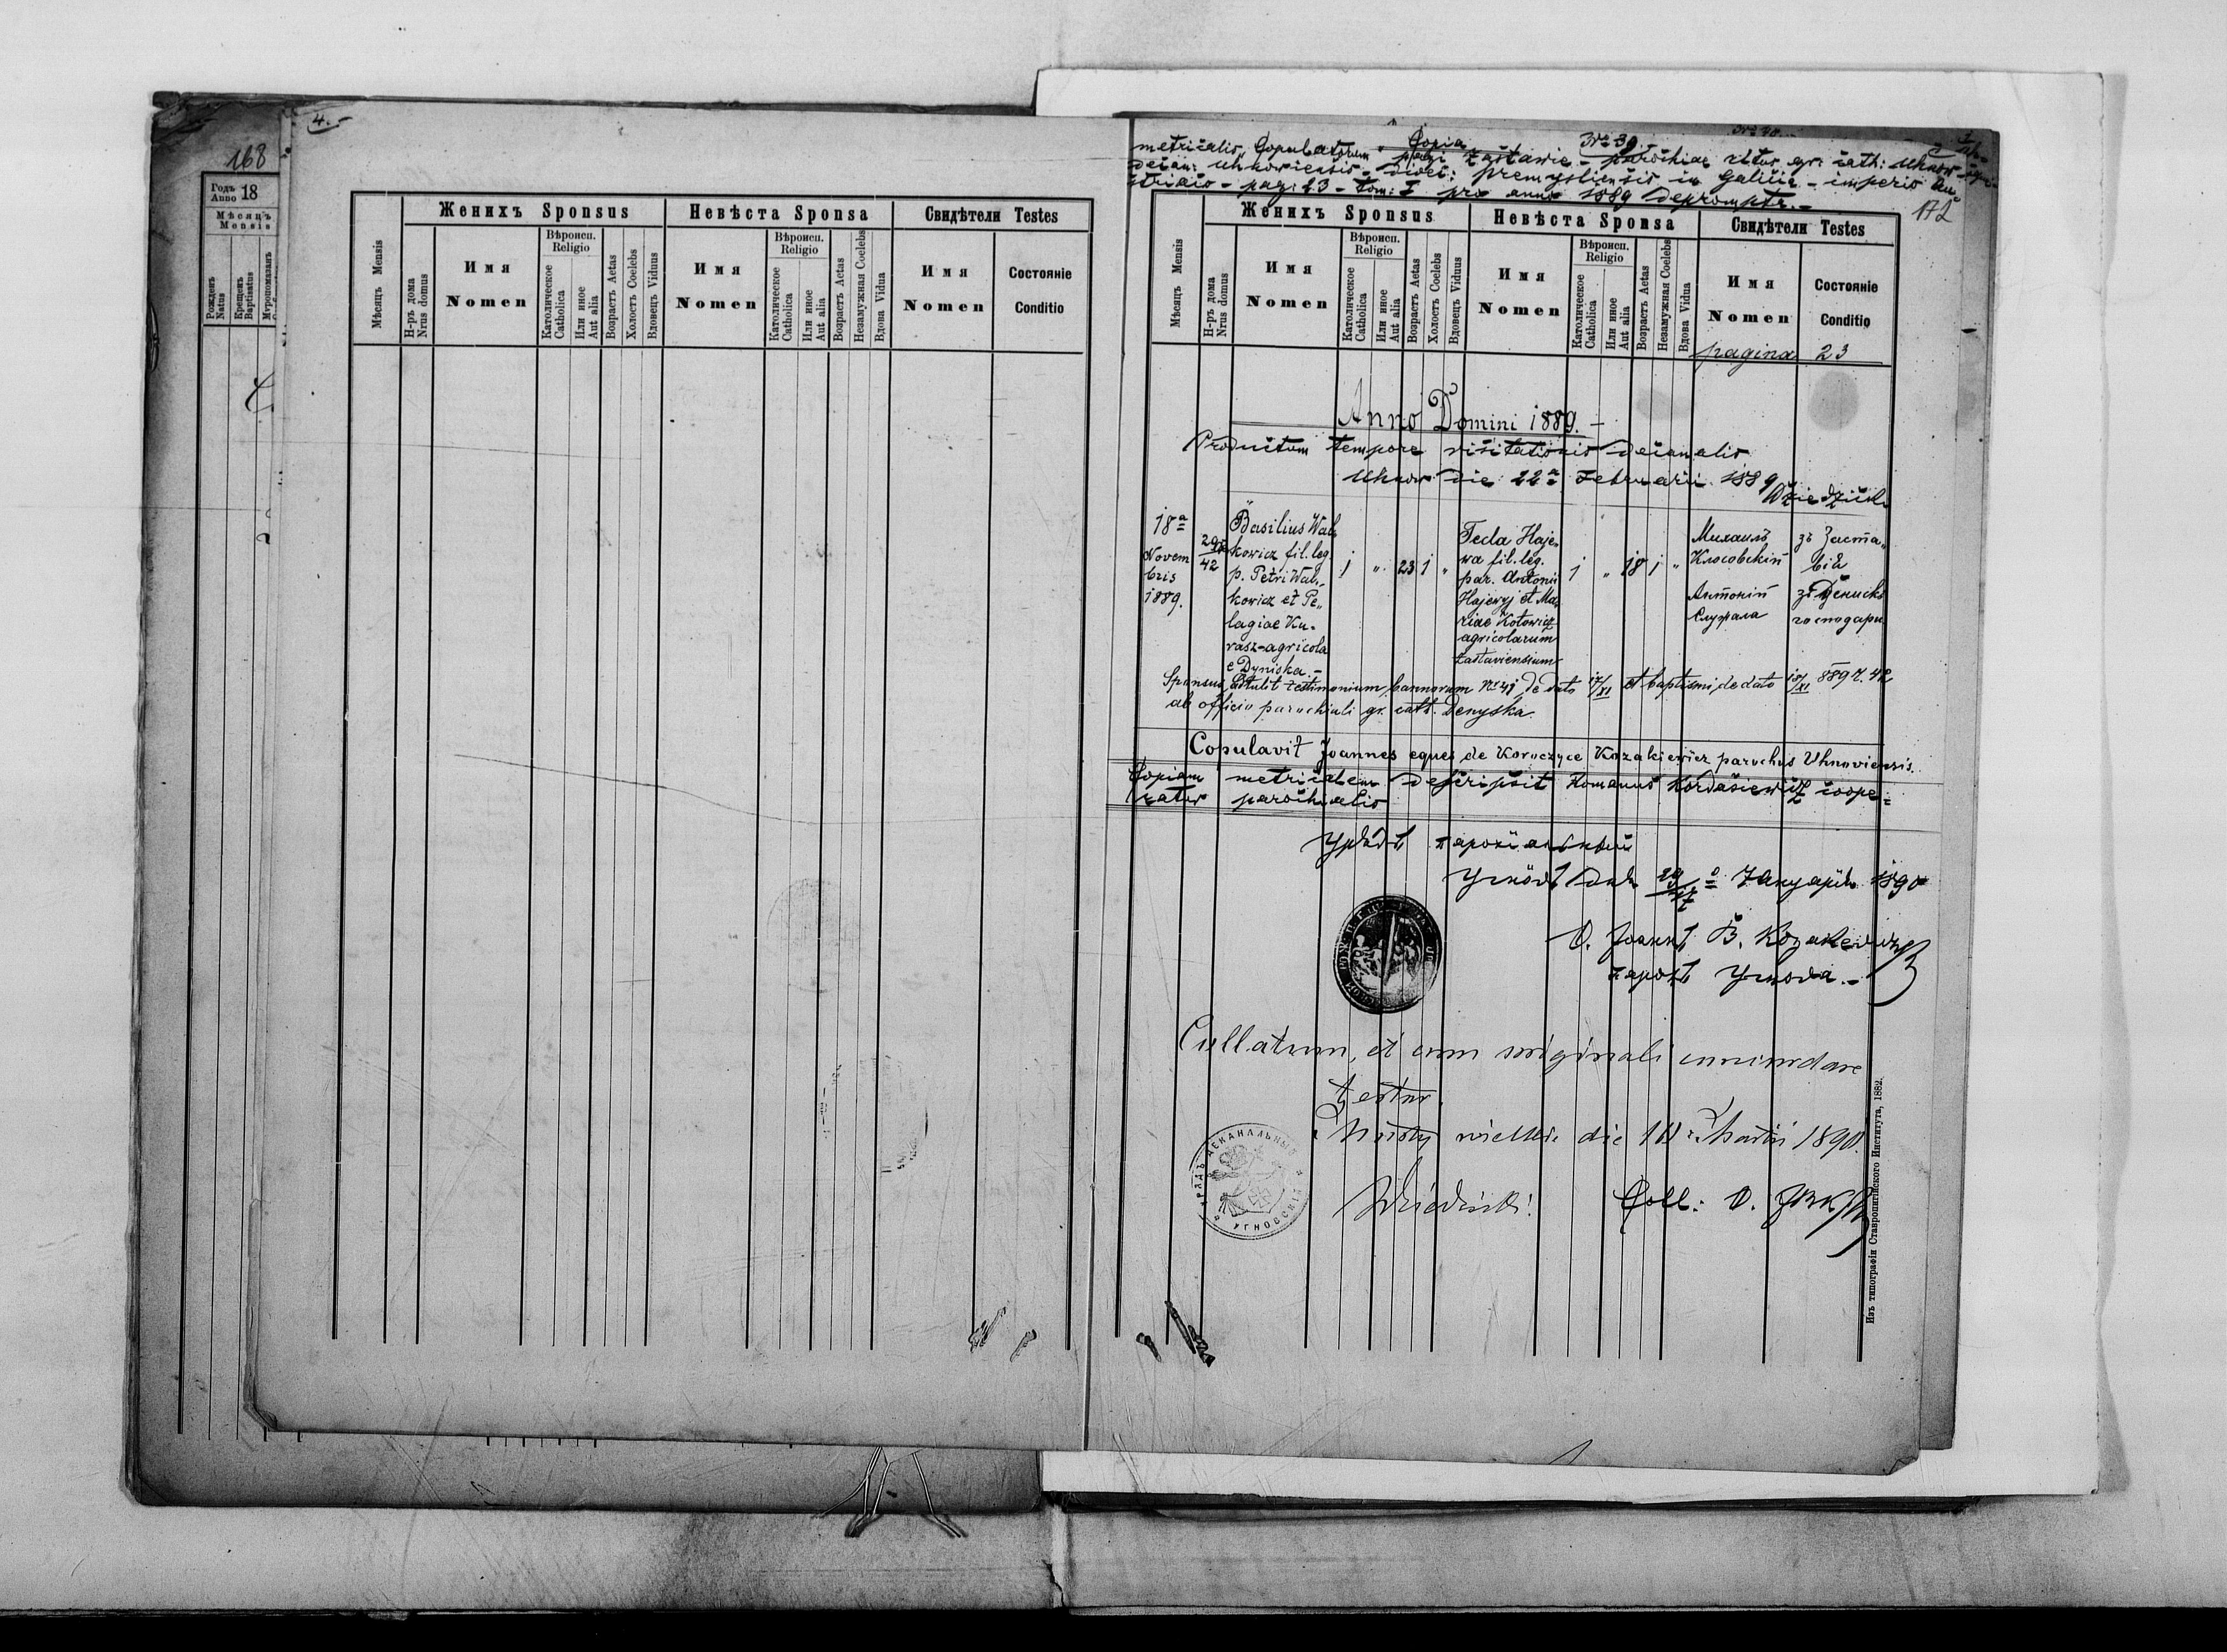 168
Годъ
Anno 18
Мѣсяцъ
Mensis
Рожденъ
Natus
Крещенъ
Baptisatus
Мѵропомазанъ
4.-
Женихъ Sponsus
Невѣста Sponsa
Свидѣтели Testes
Мѣсяцъ Mensis
Н-ръ дома
Nrus domus
Имя
Nomen
Вѣроисп.
Religio
Католическое
Catholica
Или иное
Aut alia
Возрастъ Aetas
Холостъ Coelebs
Вдовецъ Viduus
Имя
Nomen
Вѣроисп.
Religio
Католическое
Catholica
Или иное
Aut alia
Возрастъ Aetas
Незамужная Coelebs
Вдова Vidua
Имя
Nomen
Состояніе
Conditio
Copia
Nro 39.
metricalis Copulatorum pagi Zastawie - parochiae ritus gr: cath: Uhnow
decan: Uhnoviensis - dioec: Premysliensis in Galicia - imperio Au
striaco - pag: 23 - tom: I pro anno 1889 depromptr.-
172
Женихъ Sponsus
Невѣста Sponsa
Свидѣтели Testes
Мѣсяцъ Mensis
Н-ръ дома
Nrus domus
Имя
Nomen
Вѣроисп.
Religio
Католическое
Catholica
Или иное
Aut alia
Возрастъ Aetas
Холостъ Coelebs
Вдовецъ Viduus
Имя
Nomen
Вѣроисп.
Religio
Католическое
Catholica
Или иное
Aut alia
Возрастъ Aetas
Незамужная Coelebs
Вдова Vidua
Имя
Nomen
Состояніе
Conditio
pagina 23
Anno Domini 1889. -
Productum tempore visitationis decanalis
Uhnow die 22a Februarii 1889
18a
Novem
bris
1889.
42
Basilius Wal„
kowicz fil. leg.
p. Petri Wal„
kowicz et Pe„
lagiae Ku„
rasz-agricola
e Dyniska.-
1 „ 23 1 „
Tecla Haje„
wa fil. leg.
par. Antonii
Hajewyj et Ma„
riae Kotowicz
agricolarum
Zastaviensium
1 „ 18 1 „
Михаилъ
Клосовскій
Антоній
зъ Заста„
вія
зъ Дениска
господари
Sponsus attulit testimonium bannorum Nr 41 de dato 17/XI et baptismi de dato 15/XI 889 N. 42
ab officio parochiali gr. cath. Denyska.
Copulavit Joannes eques de Koroczyce Kozakiewicz parochus Uhnoviensis.
Copiam metricalem descripsit Romanus Kordasiewicz coope=
rator parochialis
Урядъ парохіальный
Угновъ дня Януарія 1890
О. Іоаннъ В. Козакевичъ
парохъ Угнова.-
Collatum, et cum originali concordare
testor.
die Martii 1890.
УРЯДЪ ДЕКАНАЛЬНЫЙ
УГНОВСКІЙ
Coll: О.
Изъ типографіи Ставропигійского Института, 1882.